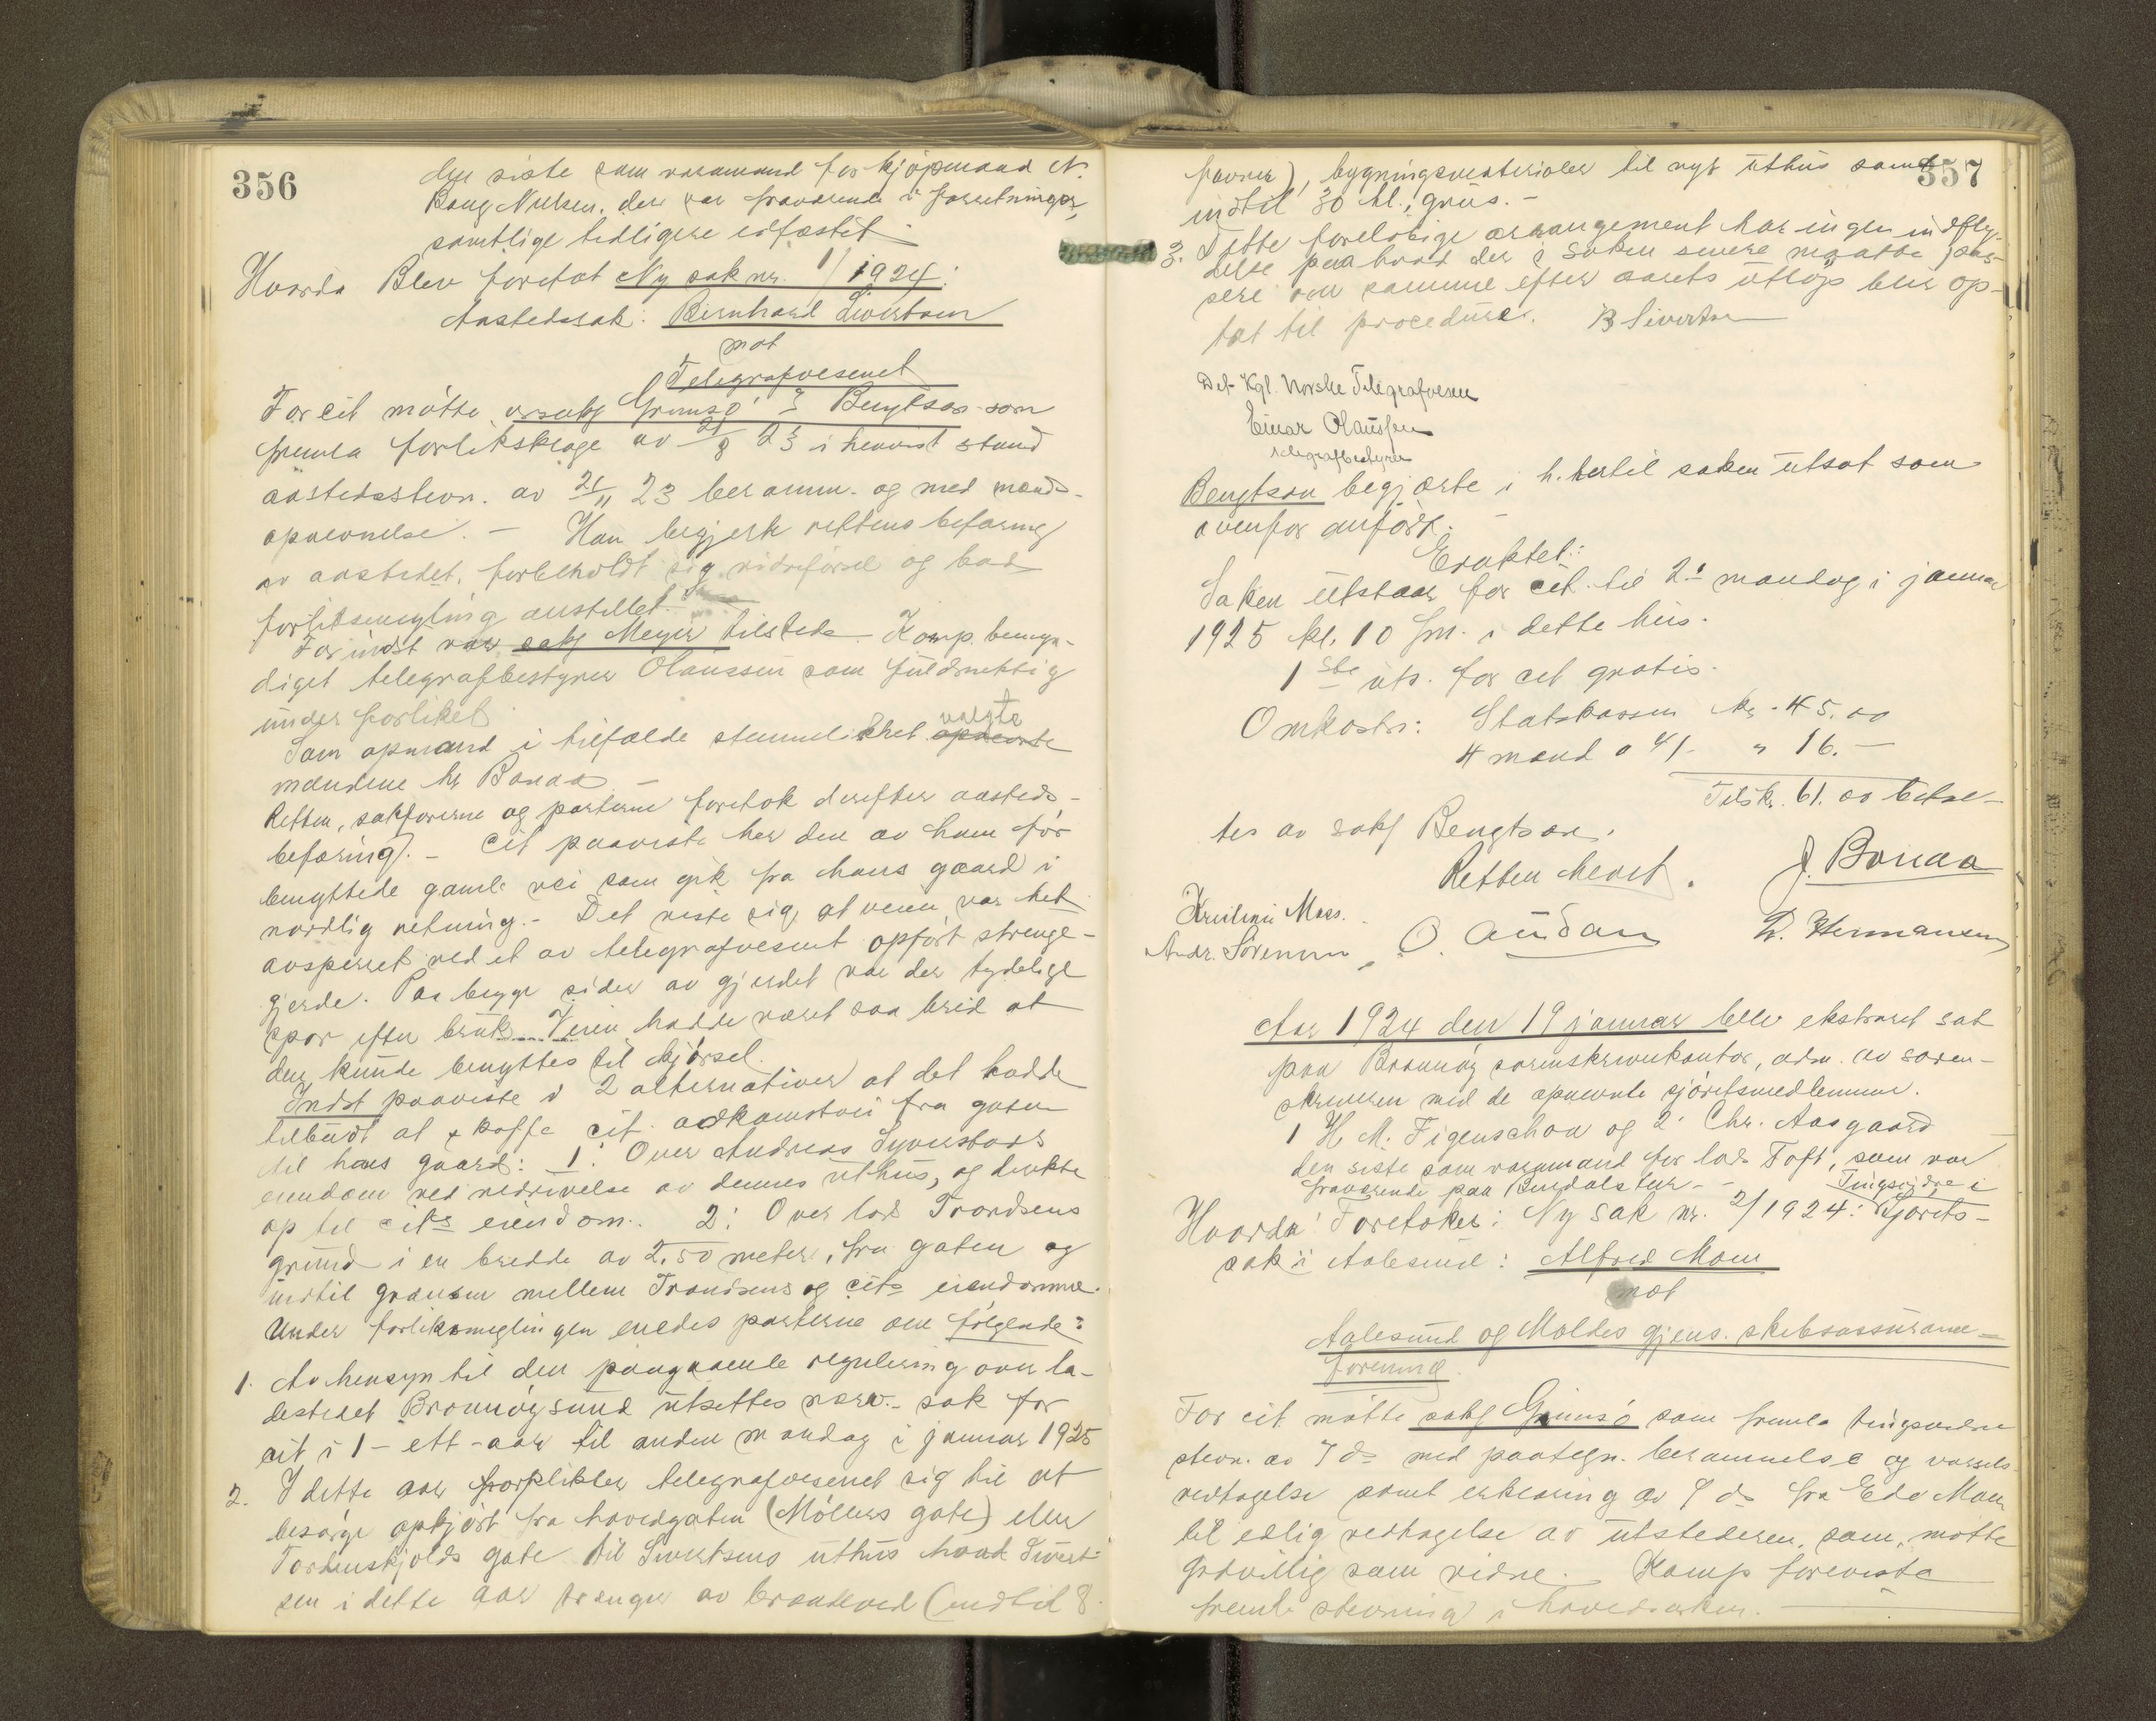 356
den siste som varamand for kjöpmand N.
Bang Nielsen, der var fraværende i forretninger,
samtlige tidligere edfæstet
Hvorda Blev foretat Ny sak nr. 1/1924:
Aastedssak: Bernhard Sivertsen
mot
Telegrafvesenet
For cit mötte orsakf Grimsö Bengtson som
fremla forliksklage av 8 23 i henvist stand
aastedsstevn. av 21/11 23 beramm. og med mands-
opnevnelse. – Han begjerte rettens befaring
av aastedet, forbeholdt sig vidreförsel og bad
forliksmegling anstillet.
For indst var sakf Meyer tilstede. Komp. bemyn-
diget telegrafbestyrer Olaussen som fuldmektig
under forliket
Som opmand i tilfælde stemmelikhet valgte
opnevnte
mændene hr Bonaa –
Retten, sakförerne og parterne foretok derefter aasteds-
befaring. – Cit paaviste her den av ham för
benyttede gamle vei som gik fra hans gaard i
nordlig retning. – Det viste sig at veien var helt
avsperret ved et av telegrafvesenet opfört strenge-
gjerde. Paa begge sider av gjerdet var der tydelige
spor efter bruk. Veien hadde været saa breid at
den kunde benyttes til kjörsel.
Indst paaviste i 2 alternativer at det hadde
tilbudt at skaffe cit. adkomstvei fra gaten
til hans gaard: 1: Over Andreas Syvertsens
eiendom ved nedrivelse av dennes uthus, og direkte
op til cits eiendom. 2: Over lods Trondsens
grund i en bredde av 2,50 meter, fra gaten og
indtil grænsen mellem Trondsens og cits eiendomme.
Under forliksmeglingen enedes parterne om følgende:
1. Av hensyn til den paagaaende regulering over la-
destedet Brønnöysund utsettes nærv. sak for
cit i 1 – ett – aar til anden mandag i januar 1925
2. I dette aar forplikter telegrafvesenet sig til at
besörge opkjört fra hovedgaten (Möllers gate) eller
Tordenskjolds gate til Sivertsens uthus hvad Sivert-
sen i dette aar trenger av brændeved (indtil 8
357
favner), bygningsmaterialer til nyt uthus samt
indtil 30 hl. grus. –
3. Dette forelöbige arrangement har ingen indfly-
delse paa hvad der i saken senere maatte pas-
sere om samme efter aarets utlöp blir op-
tat til procedure. B Sivertsen
Det Kgl. Norske Telegrafvesen
Einar Olaussen
telegrafbestyrer
Bengtson begjærte i h. hertil saken utsat som
ovenfor anfört. –
Eraktet:
Saken utstaar for cit. til 2. mandag i januar
1925 kl. 10 fm. i dette hus.
1ste uts. for cit gratis.
Omkostn: Statskassen kr. 45.00
4 mænd a 4/- " 16. –
Tils kr. 61.00 betal-
tes av sakf Bengtson.
Retten hævet. J. Bonaa
Andr. Sörensen O. Audan D. Hermansen
Aar 1924 den 19 januar blev ekstraret sat
paa Brønnöy sorenskriverkontor, adm. av soren-
skriveren med de opnevnte sjöretsmedlemmer.
1 H. M. Figenschou og 2. Chr. Aasgaard
den siste som varamand for lods Toft, som var
fraværende paa Bindalstur – Tingsvidne i
Hvorda: Foretokes: Ny sak nr. 2/1924: Sjörets-
sak i Aalesund: Alfred Moen
mot
Aalesund og Moldes gjens. skibsassurance-
forening.
For cit mötte sakf Grimsö som fremla tingsvidne
stevn. av 7 ds med paategn. berammelse og varsels-
vedtagelse samt erklæring av 9 ds fra Edv Moen
til edlig vedtagelse av utstederen, som mötte
godvillig som vidne. Komp foreviste
fremle stevning i hovedsaken. –